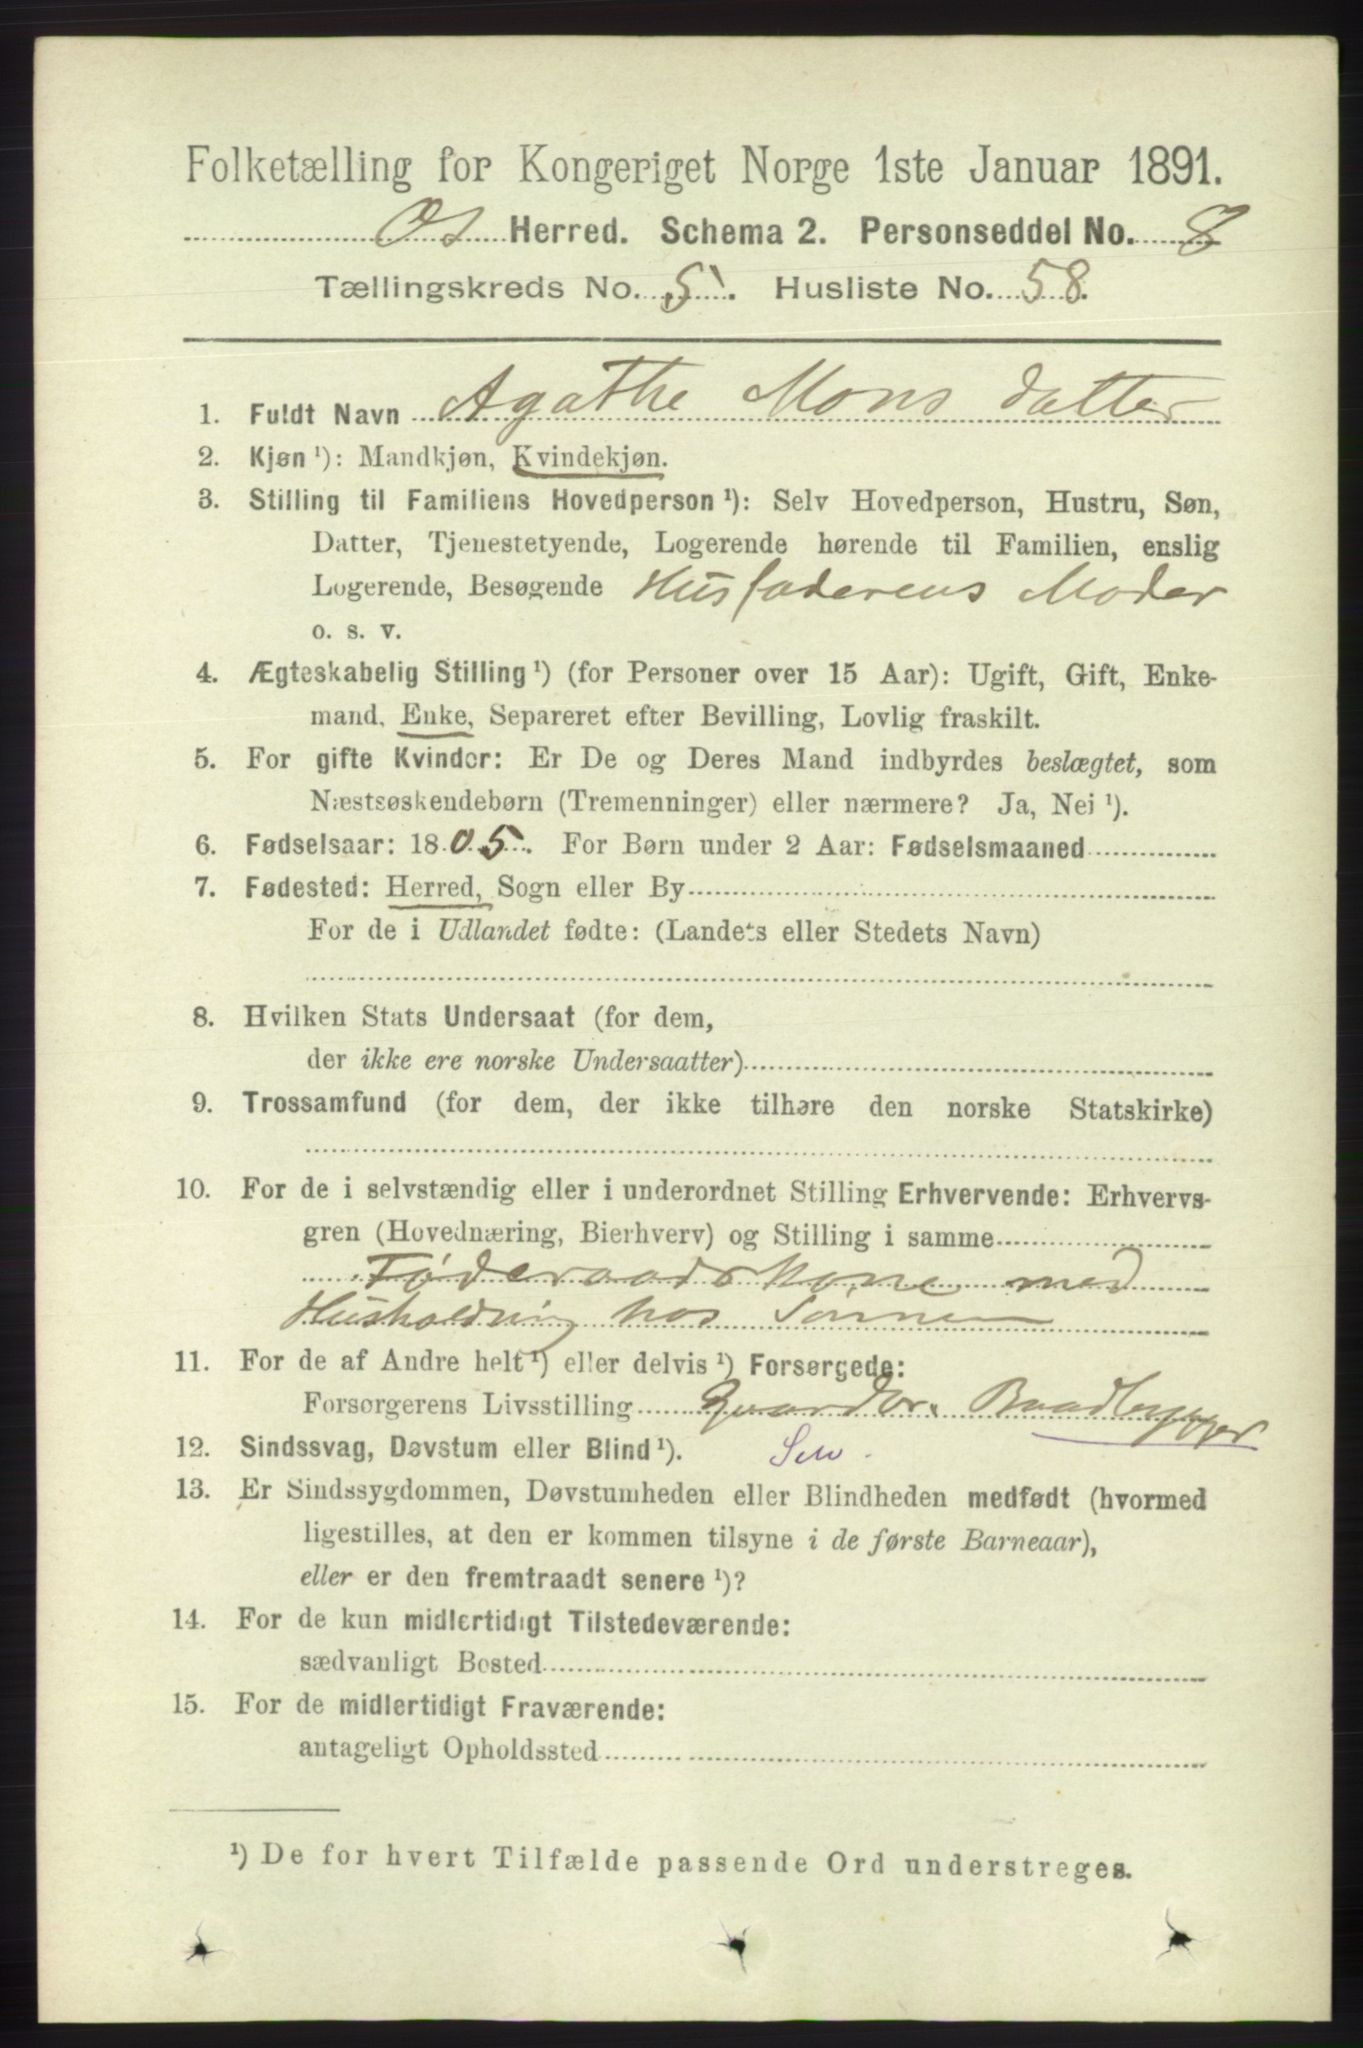 Folketælling for Kongeriget Norge 1ste Januar 1891.
Os Herred. Schema 2. Personseddel No. 8
Tællingskreds No. 5. Husliste No. 58.
1. Fuldt Navn Agathe Mons datter
2. Kjøn ¹): Mandkjøn, Kvindekjøn.
3. Stilling til Familiens Hovedperson ¹): Selv Hovedperson, Hustru, Søn,
Datter, Tjenestetyende, Logerende hørende til Familien, enslig
Logerende, Besøgende Husfaderens Moder
o. s. v.
4. Ægteskabelig Stilling ¹) (for Personer over 15 Aar): Ugift, Gift, Enke-
mand, Enke, Separeret efter Bevilling, Lovlig fraskilt.
5. For gifte Kvinder: Er De og Deres Mand indbyrdes beslægtet, som
Næstsøskendebørn (Tremenninger) eller nærmere? Ja, Nei ¹).
6. Fødselsaar: 1805. For Børn under 2 Aar: Fødselsmaaned
7. Fødested: Herred, Sogn eller By
For de i Udlandet fødte: (Landets eller Stedets Navn)
8. Hvilken Stats Undersaat (for dem,
der ikke ere norske Undersaatter)
9. Trossamfund (for dem, der ikke tilhøre den norske Statskirke)
10. For de i selvstændig eller i underordnet Stilling Erhvervende: Erhvervs-
gren (Hovednæring, Bierhverv) og Stilling i samme
Føderaadskone med
Husholdning hos Sønnen
11. For de af Andre helt ¹) eller delvis ¹) Forsørgede:
Forsørgerens Livsstilling Gaardbr. Baadbygger
12. Sindssvag, Døvstum eller Blind ¹).
13. Er Sindssygdommen, Døvstumheden eller Blindheden medfødt (hvormed
ligestilles, at den er kommen tilsyne i de første Barneaar),
eller er den fremtraadt senere ¹)?
14. For de kun midlertidigt Tilstedeværende:
sædvanligt Bosted
15. For de midlertidigt Fraværende:
antageligt Opholdssted
¹) De for hvert Tilfælde passende Ord understreges.